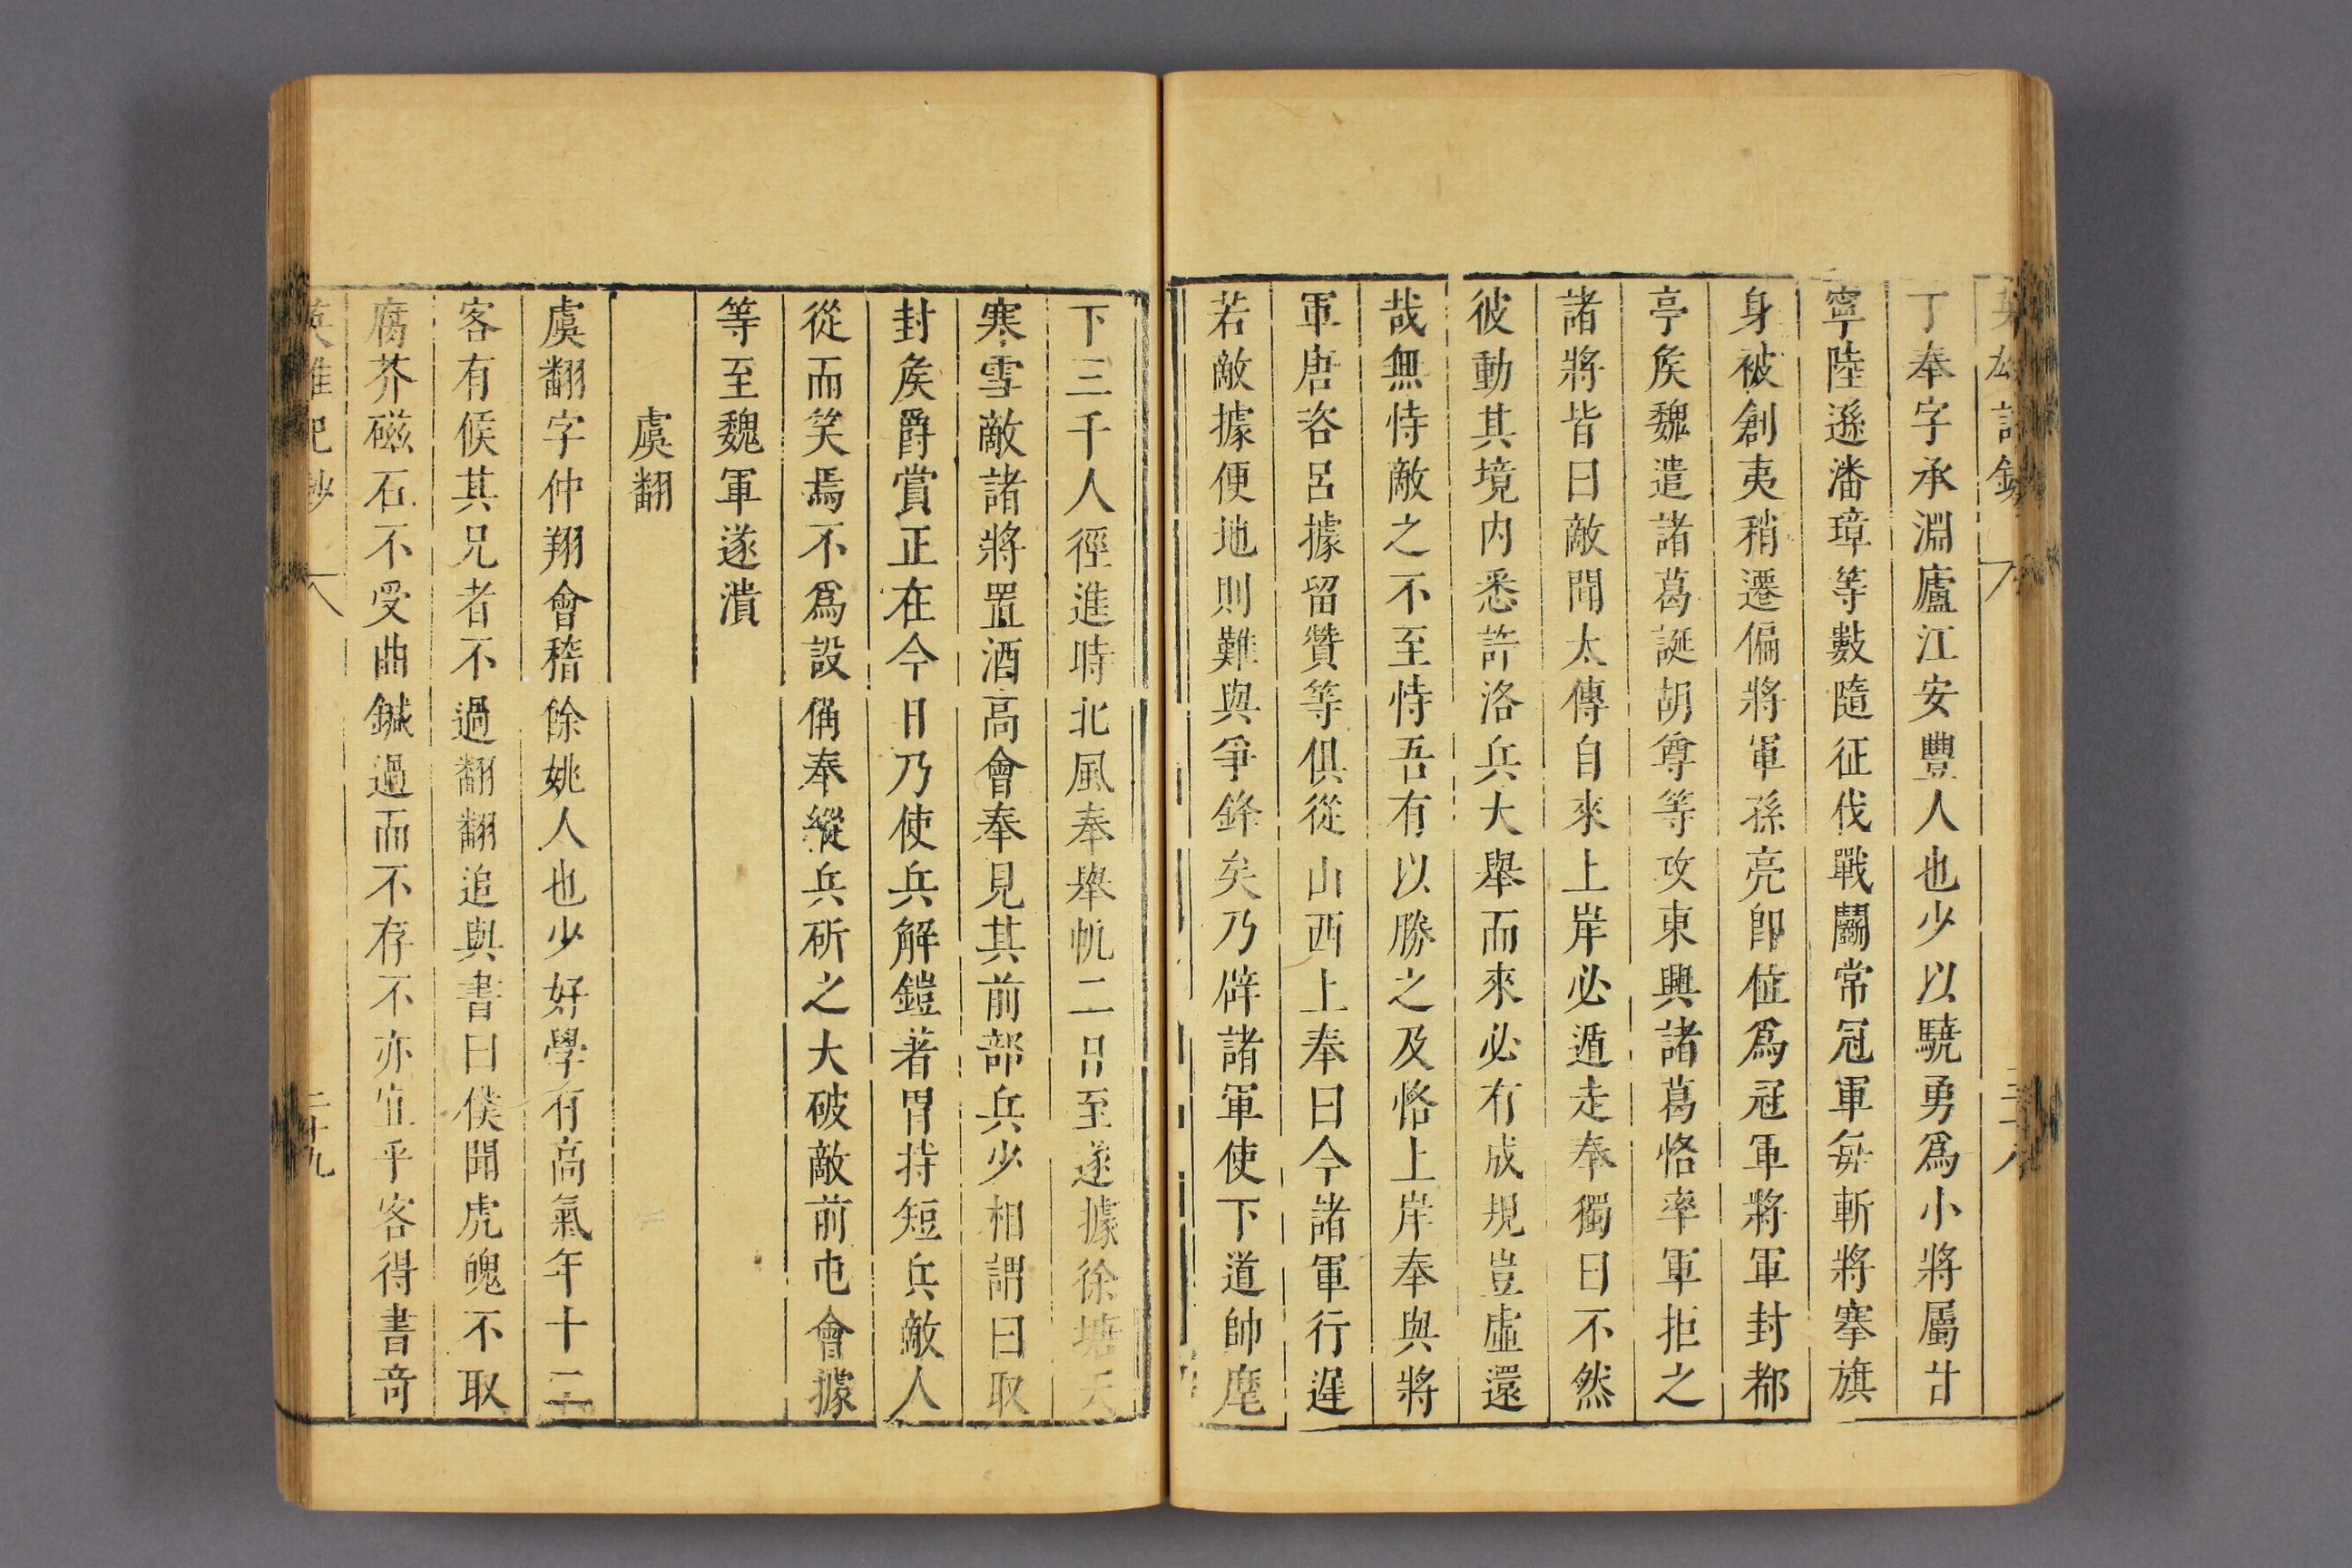 丁奉字承淵廬江安豐人也少以驍勇爲小將屬甘
寧陸遜潘璋等數隨征伐戰鬬常冠軍每斬將搴旗
身被創夷稍遷偏將軍孫亮卽位爲冠軍將軍封都
亭矦魏遣諸葛誕胡尊等攻東興諸葛恪率軍拒之
諸將皆曰敵聞太傅自來上岸必遁走奉獨曰不然
彼動其境内悉許洛兵大舉而來必有成規豈虛還
哉無恃敵之不至恃吾有以勝之及恪上岸奉與將
軍唐咨呂據留贊等俱從山西上奉曰今諸軍行遲
若敵據便地則難與爭鋒矣乃辟諸軍使下道帥麾
下三千人徑進時北風奉舉帆二日至遂據徐塘天
寒雪敵諸將置酒高會奉見其前部兵少相謂曰取
封矦爵賞正在今日乃使兵解鎧著胄持短兵敵人
從而笑焉不爲設俻奉縱兵斫之大破敵前屯會據
等至魏軍遂潰
虞翻
虞翻字仲翔會稽餘姚人也少好學有高氣年十二
客有候其兄者不過翻翻追與書曰僕聞虎魄不取
腐芥磁石不受曲鍼過而不存不亦宜乎客得書奇
英雄記鈔 八 二十九